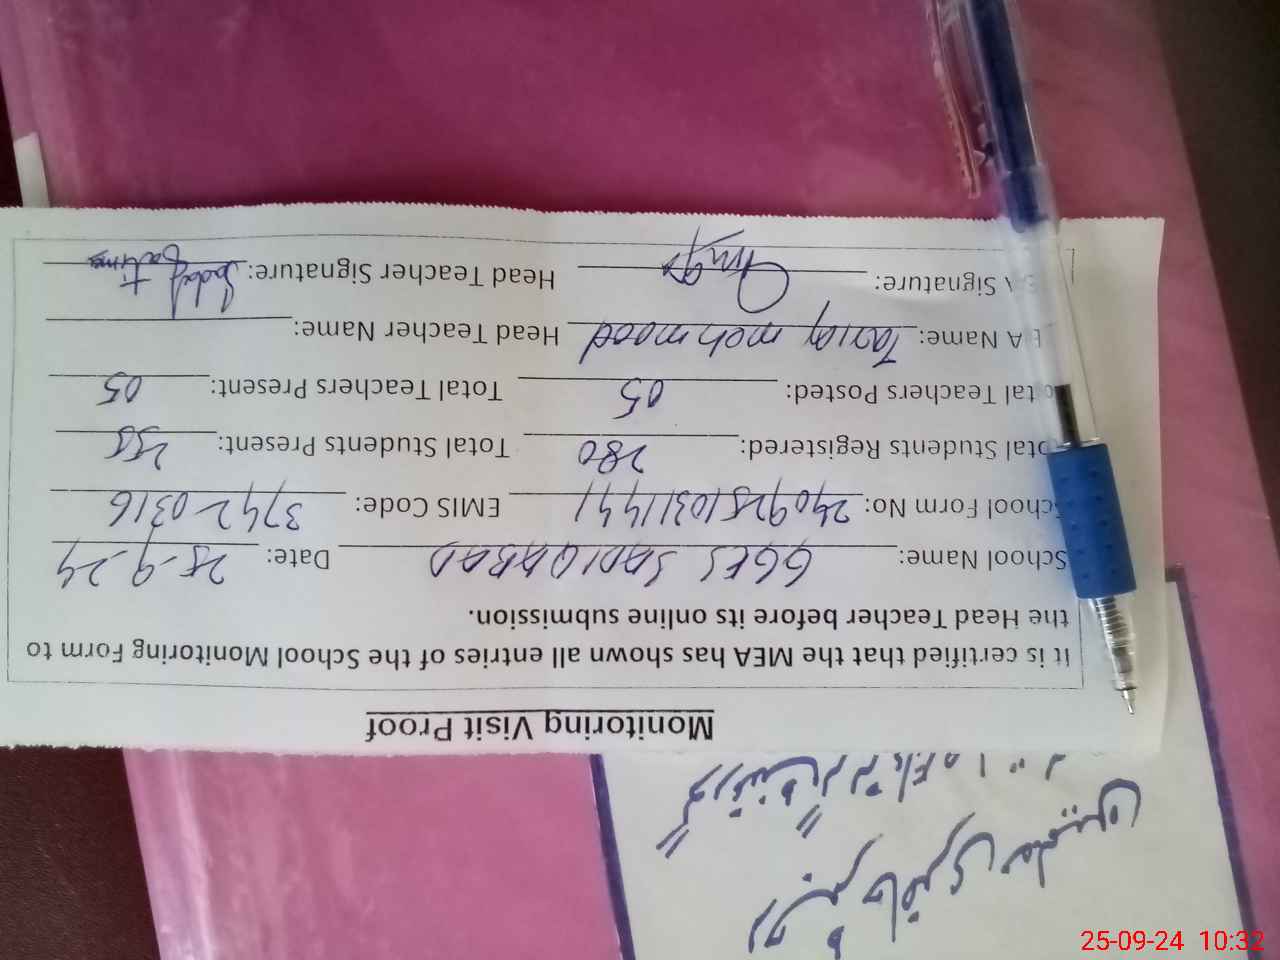 Monitoring Visit Proof
It is certified that the MEA has shown all entries of the School Monitoring Form to
the Head Teacher before its online submission.
School Name: GGES SADIQABAD Date: 25-9-24
School Form No: EMIS Code: 37420316
Total Students Registered: 280 Total Students Present: 255
Total Teachers Posted: 05 Total Teachers Present: 05
EA Name: Tariq mehmood Head Teacher Name:
EA Signature: Head Teacher Signature: Sadaf Fatima
رجسٹر حاضری معلمین
گورنمنٹ گرلز
25-09-24 10:32